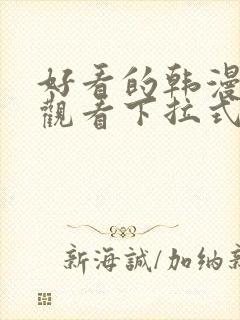 好看的韩漫
觀看下拉式
新海誠/加纳新